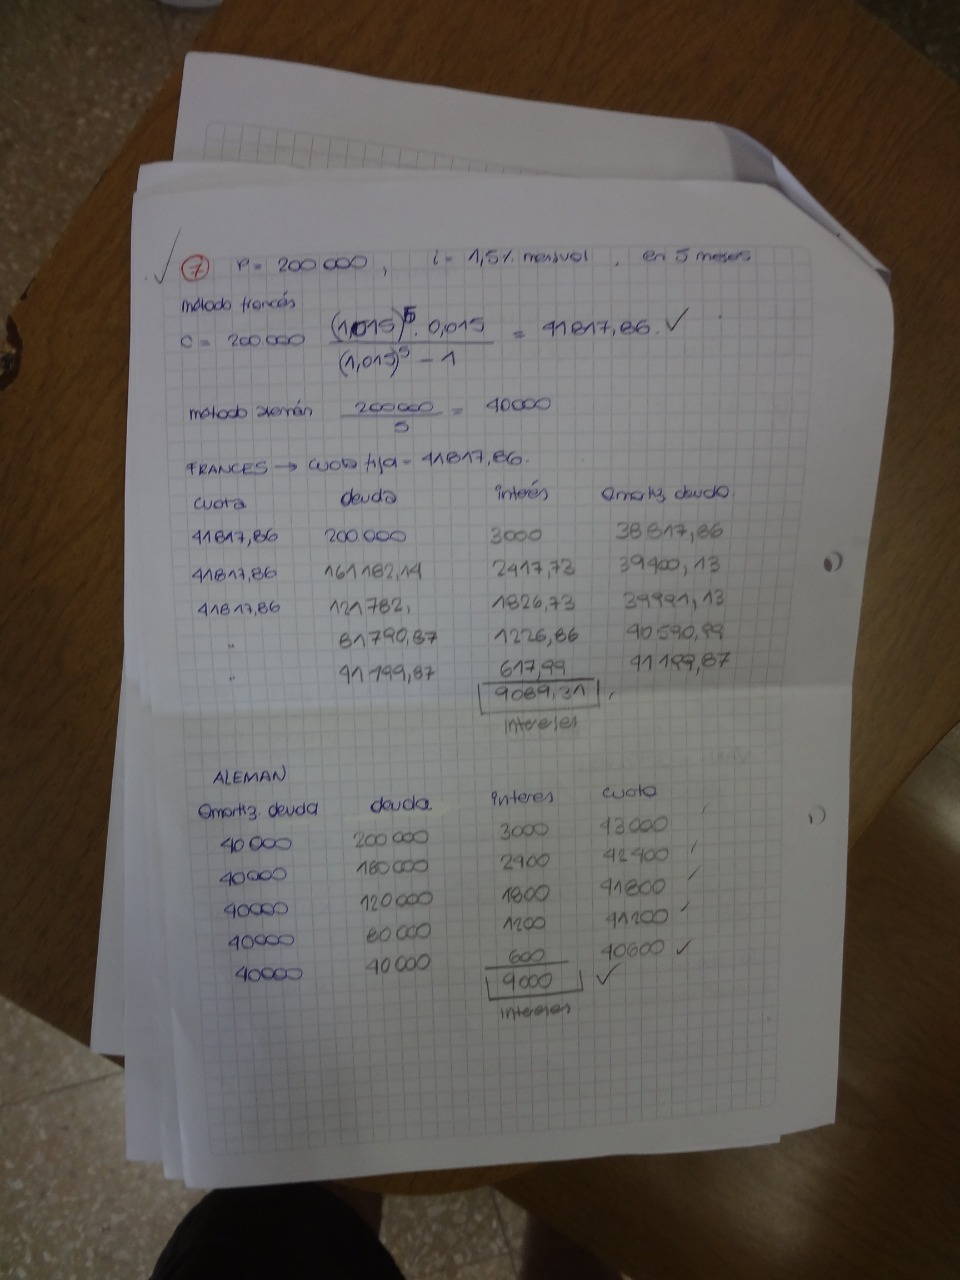 7 P = 200 000, i = 1,5% mensual, en 5 meses
método francés
C = 200.000 (1,015)^5 . 0,015 / (1,015)^5 - 1 = 41817,86. ✓
método alemán 200000 / 5 = 40000
FRANCES → cuota fija = 41817,86.
cuota deuda interés Amortiz. deuda.
41817,86 200.000 3000 38817,86
41817,86 161182,14 2417,73 39400,13
41817,86 121782, 1826,73 39991,13
" 81790,87 1226,86 40590,99
" 41199,87 617,99 41199,87
9089,31
intereses
ALEMAN
Amortiz. deuda deuda interes cuota
40000 200000 3000 43000
40000 160000 2400 42400
40000 120000 1800 41800
40000 80000 1200 41200
40000 40000 600 40600 ✓
9000 ✓
intereses